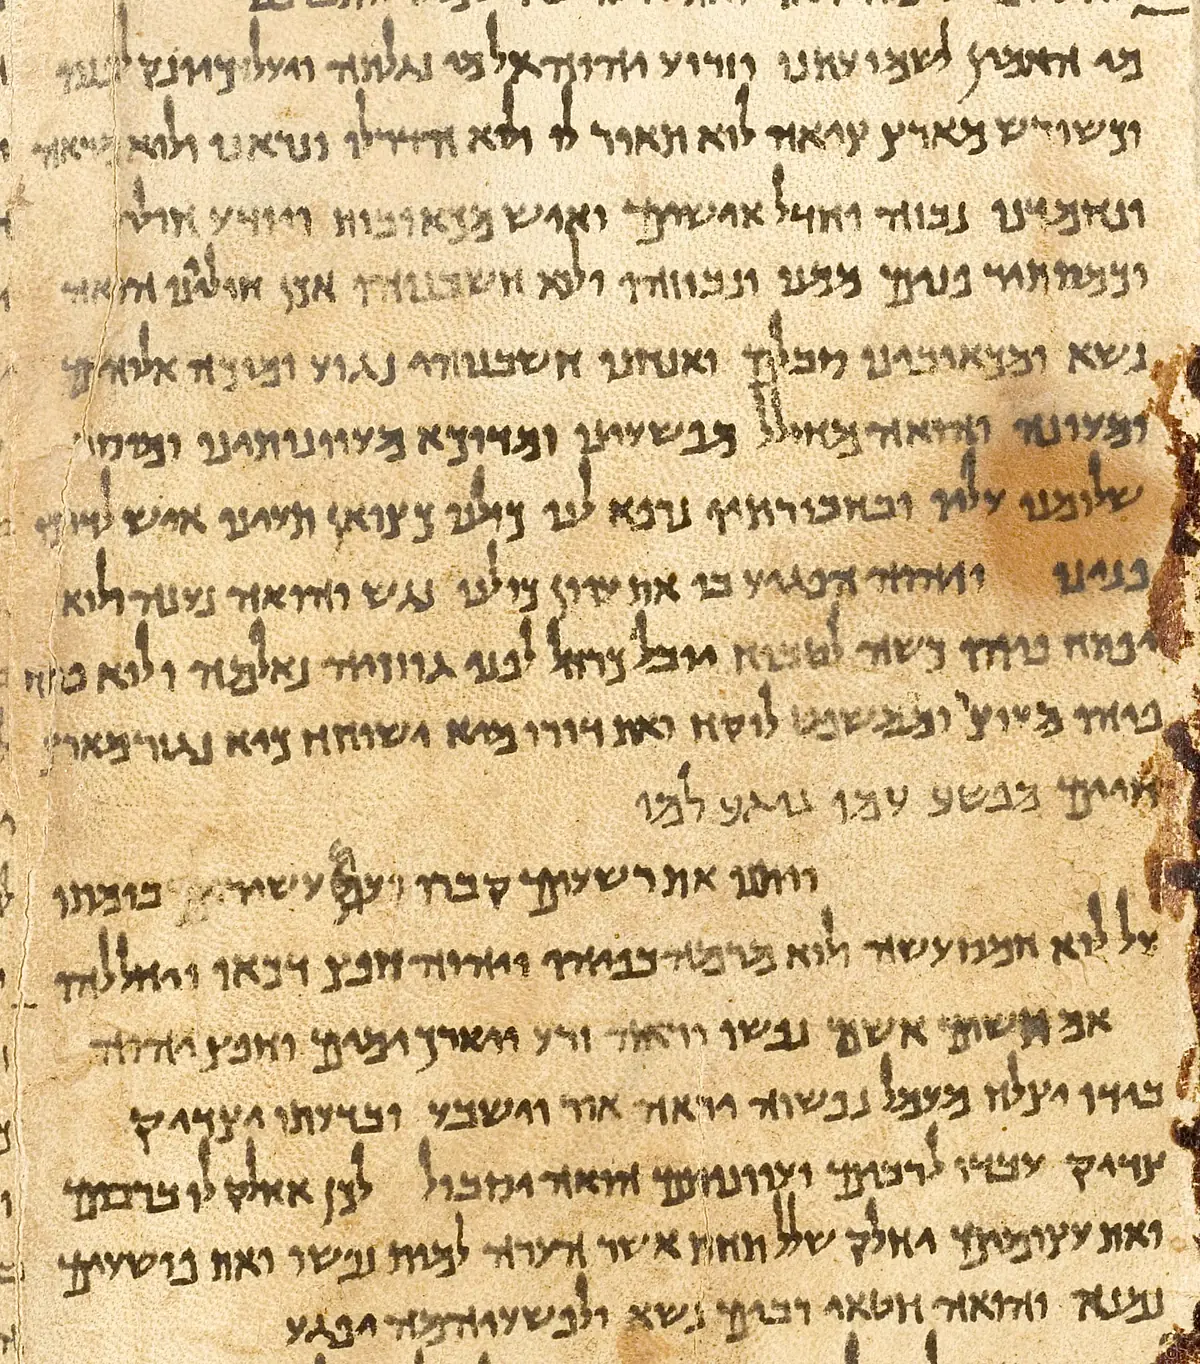 מי האמין לשמועתנו וזרוע יהוה אל מי נגלתה ויעל כיונק לפניו
וכשורש מארץ ציאה לוא תאור לו ולא הדר לו ונראנו ולוא מראה
ונחמדנו נבזה וחדל אישים ואיש מכאובות ויודע חולי
וכמסתיר פנים ממנו ונבוזהו ולא חשבנוהו אכן חוליינו הואה
נשא ומכאובינו סבלם ואנחנו חשבנוהו נגוע ומוכה אלוהים
ומעונה והואה מחולל מפשעינו ומדוכא מעוונותינו ומוסר
שלומנו עליו ובחבורתיו נרפא לנו כולנו כצואן תעינו איש לדרכו
פנינו ויהוה הפגיע בו את עוון כולנו נגש והואה נענה ולוא
יפתח פיהו כשה לטבוח יובל כרחל לפני גוזזיה נאלמה ולוא פתח
פיהו מעוצר וממשפט לוקח ואת דורו מיא ישוחח כיא נגזר מארץ
חיים מפשע עמו נוגע למו
ויתנו את רשעים קברו ועם עשירים בומתו
על לוא חמס עשה ולוא מרמה בפיהו ויהוה חפץ דכאו ויחללהו
אם תשים אשם נפשו יראה זרע ויארך ימים וחפץ יהוה
בידו יצלח מעמל נפשוה יראה אור וישבע ובדעתו יצדיק
צדיק עבדו לרבים ועוונותם הואה יסבול לכן אחלק לו ברבים
ואת עצומים יחלק שלל תחת אשר הערה למות נפשו ואת פושעים
נמנה והואה חטאי רבים נשא ולפשעיהמה יפגע